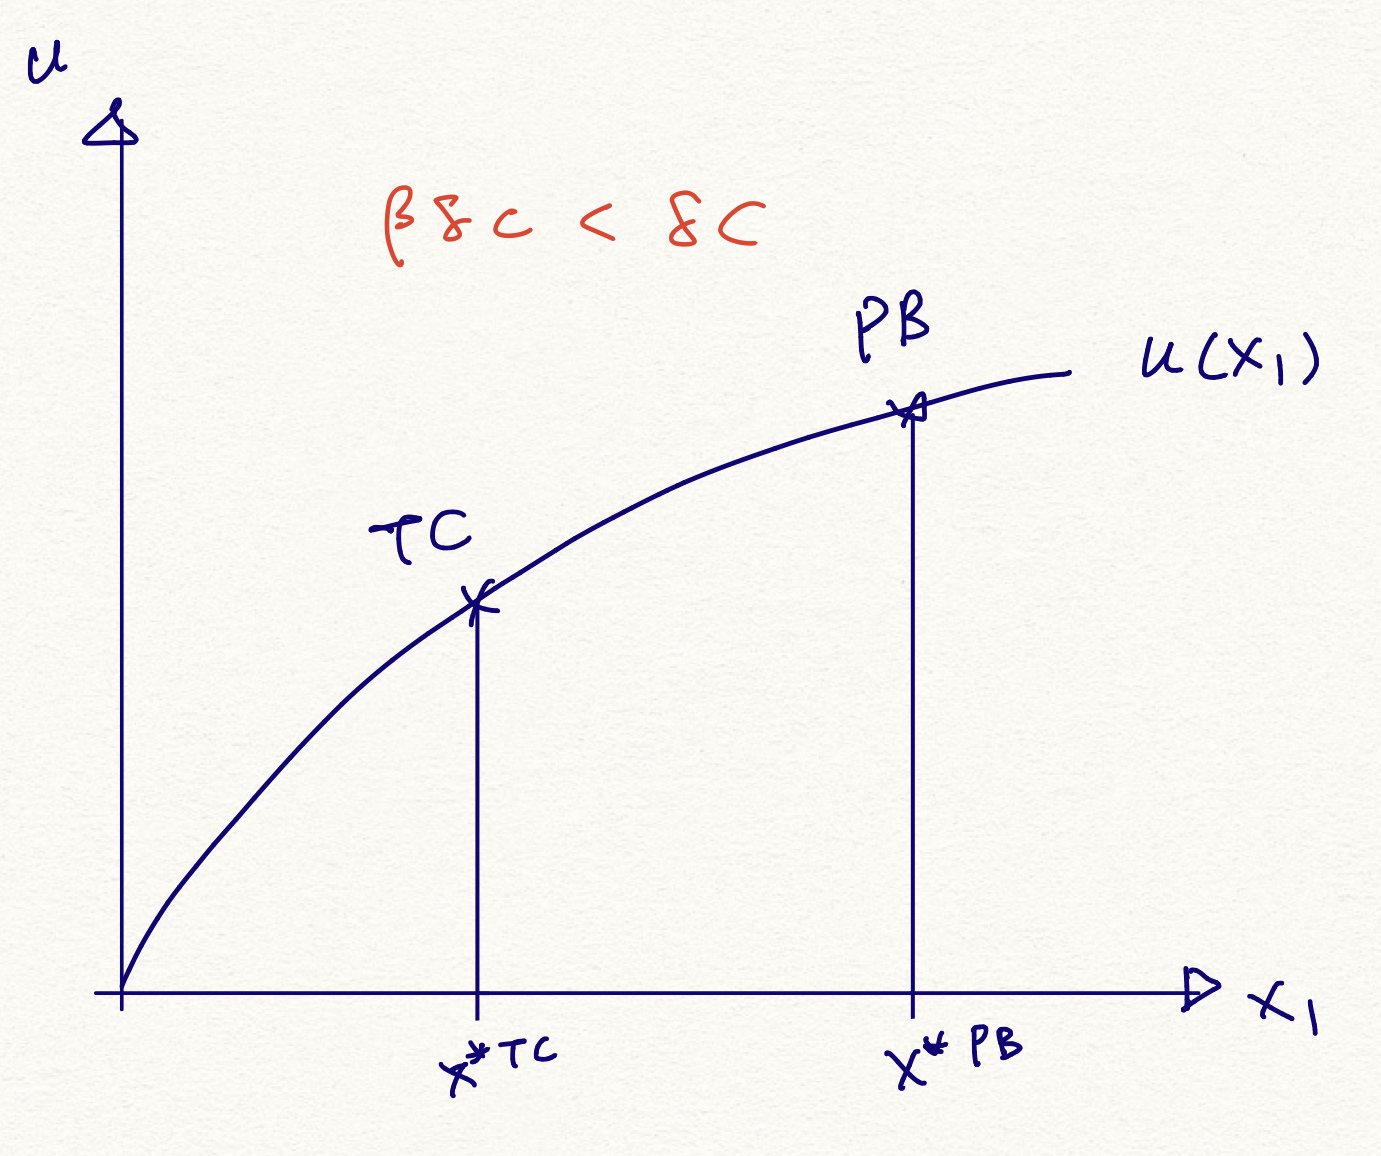 u
β δ c < δ C
PB
u(x₁)
TC
x₁
x*TC
x*PB